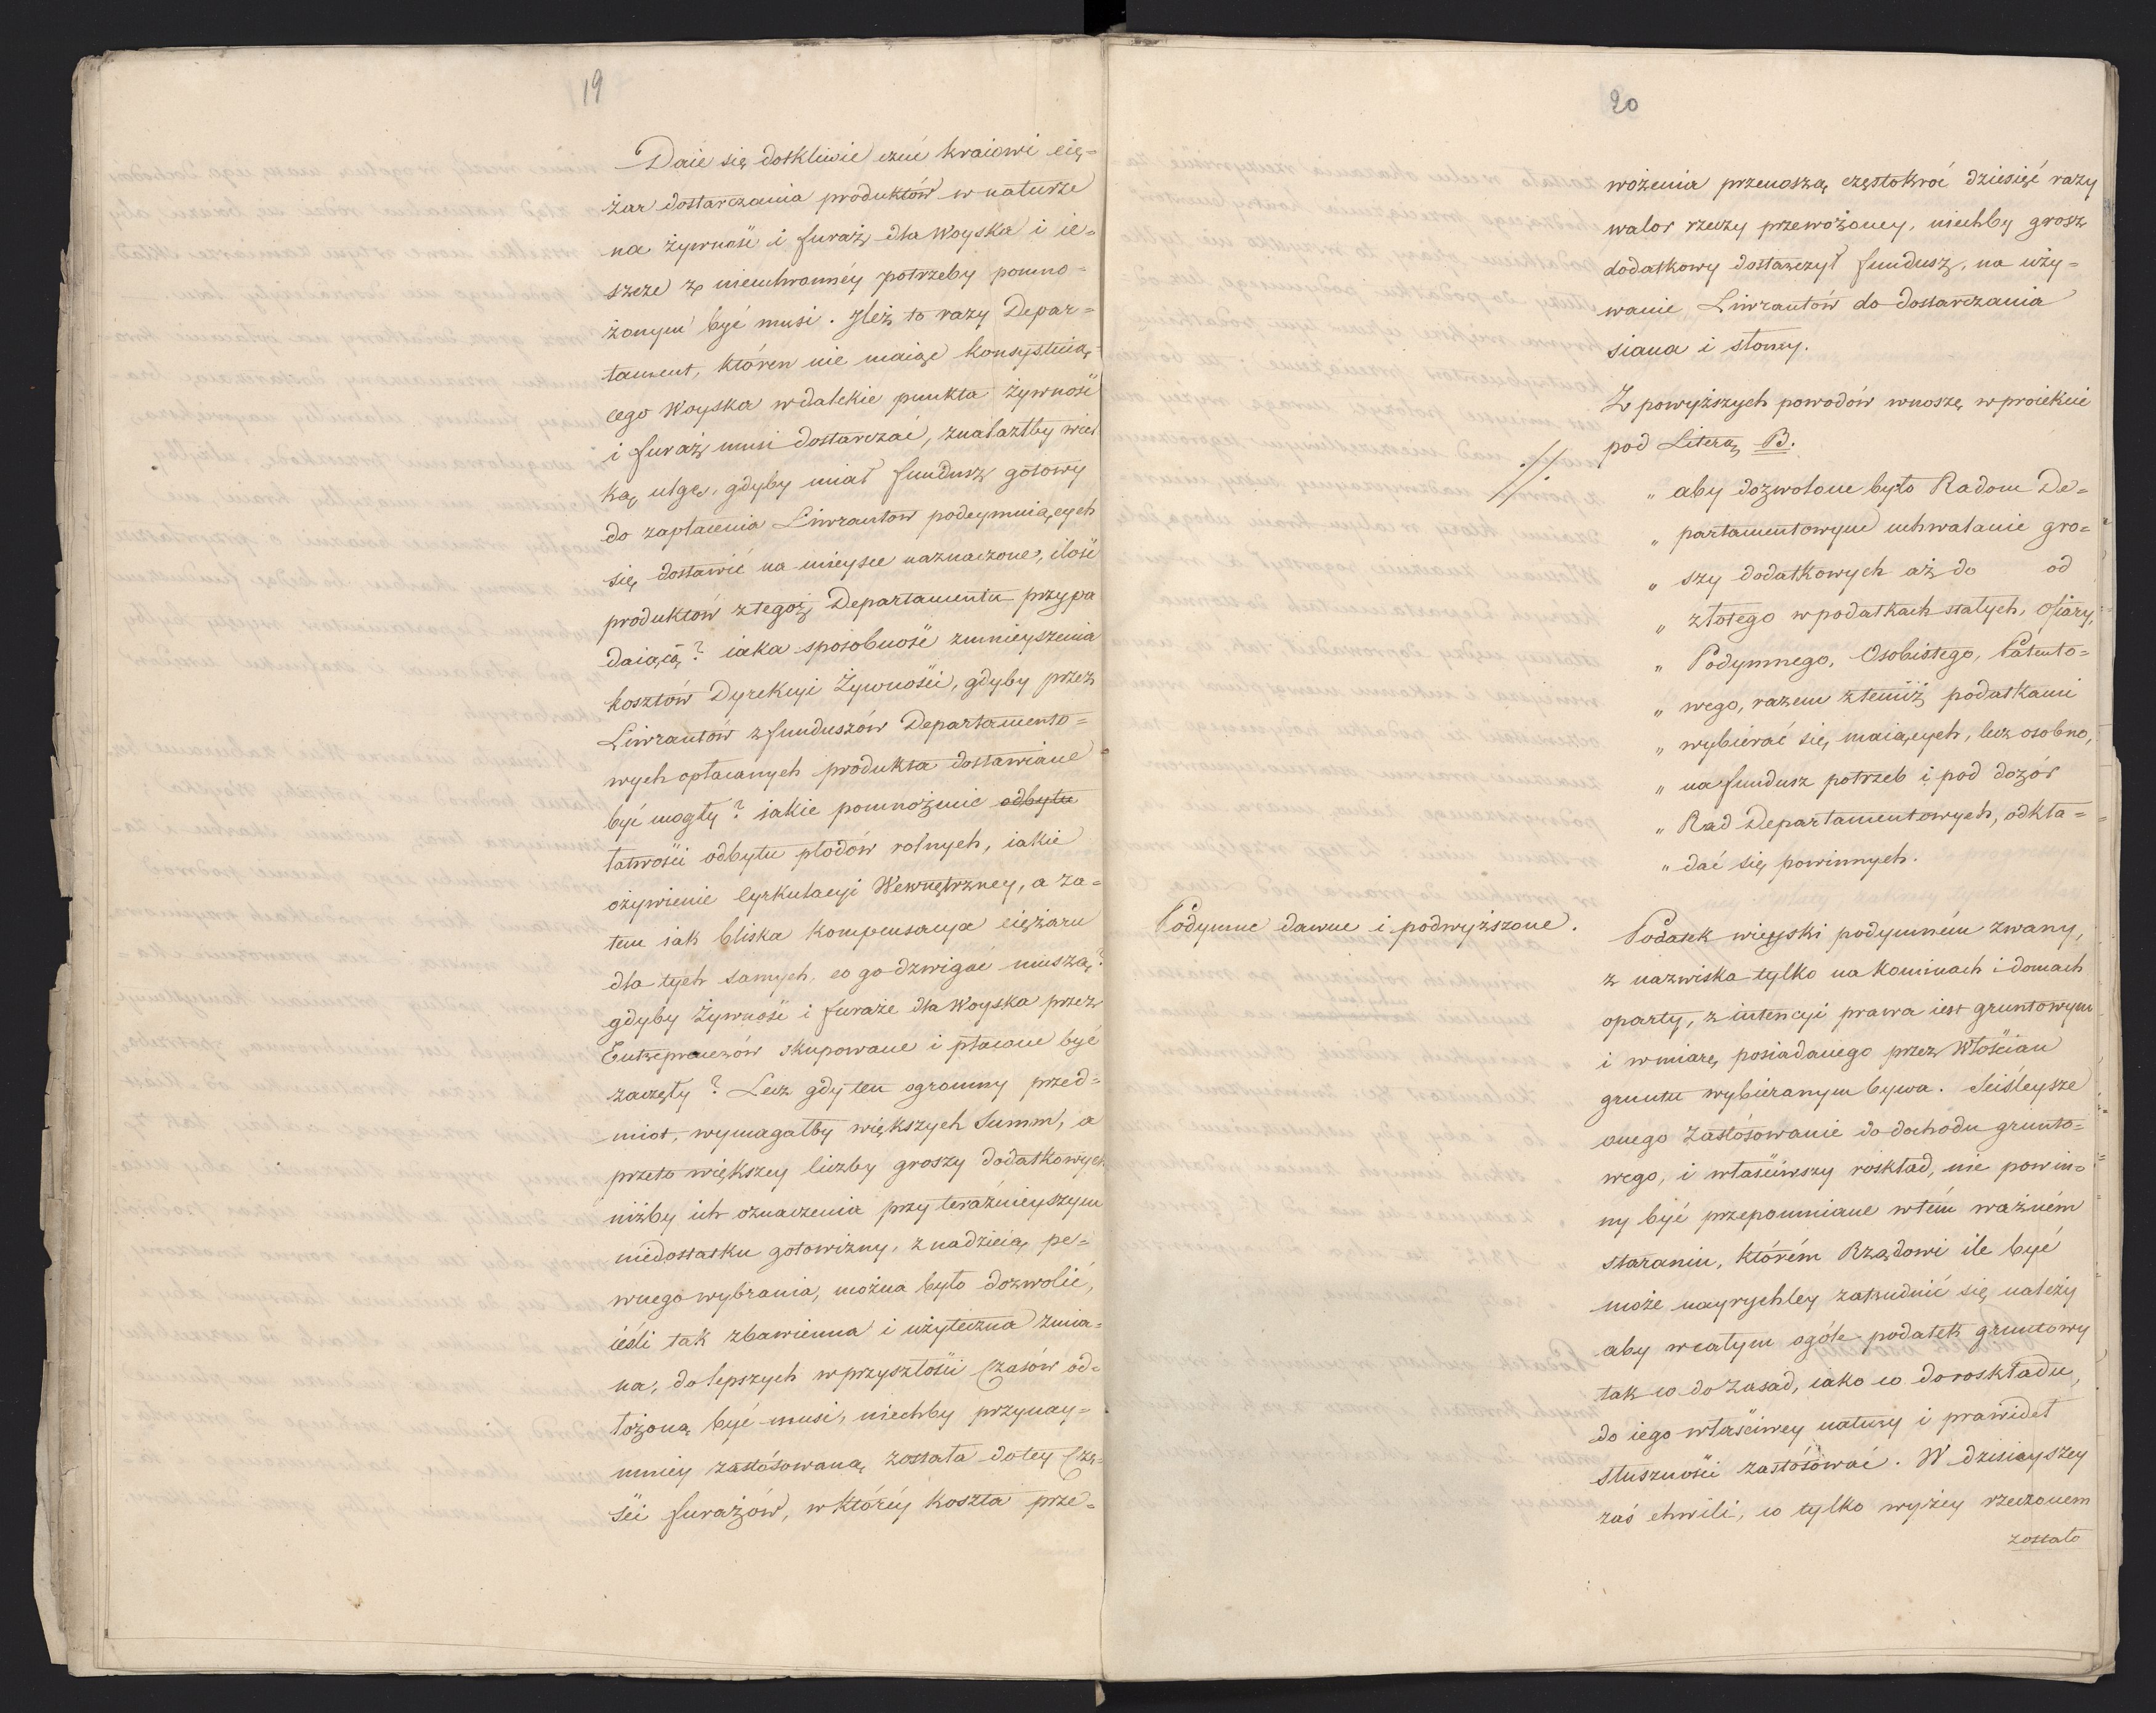 19
Daie się dotkliwie czuć kraiowi cię=
żar dostarczania produktów w naturze
na żywność i furaż dla Woyska i ie=
szcze z nieuchronnéy potrzeby pomno=
żonym być musi. Ileż to razy Depar=
tament, któren nie maiąc konsystuią=
cego Woyska w dalekie punkta żywność
i furaż musi dostarczać, znalazłby wiel
ką ulgę, gdyby miał fundusz gotowy
do zapłacenia Liwrantów podeymuiących
się dostawić na mieysce naznaczone, ilość
produktów z tegoż Departamentu przypa
daiącą? iaka sposobność zmnieyszenia
kosztów Dyrekcyi Żywności, gdyby przez
Liwrantów z funduszów Departamento=
wych opłacanych produkta dostawiane
być mogły? iakie pomnożenie odbytu
łatwości odbytu płodów rolnych, iakie
ożywienie Cyrkulacyi Wewnętrzney, a za=
tem iak bliska kompensacya ciężaru
dla tych samych, co go dzwigać muszą?
gdyby Żywność i furaże dla Woyska przez
Entreprenerów skupowane i płacone być
zaczęły? Lecz gdy ten ogromny przed=
miot, wymagałby większych Summ, a
przeto większey liczby groszy dodatkowych
niżby ich oznaczenia przy teraźnieyszym
niedostatku gotowizny, z nadzieią pe=
wnego wybrania, można było dozwolić,
ieśli tak zbawienna i użyteczna zmia=
na, do lepszych w przyszłości Czasów od=
łożoną być musi, niechby przynay=
mniey zastósowaną została do tey Czę=
ści furażów, w któréy koszta prze=
20
wożenia przenoszą częstokroć dziesięć razy
walor rzeczy przewożoney, niechby grosz
dodatkowy dostarczył fundusz, na uży=
wanie Liwrantów do dostarczania
siana i słomy.
Z powyższych powodów wnoszę w proiekcie
pod Literą B.
·//·
„ aby dozwolone było Radom De=
„ partamentowym uchwalanie gro=
„ szy dodatkowych aż do od
„ złotego w podatkach stałych, Ofiary,
„ Podymnego, Osobistego, Patento=
„ wego, razem z temiż podatkami
„ wybierać się maiących, lecz osobno,
„ na fundusz potrzeb i pod dozór
„ Rad Departamentowych, odkła=
„ dać się powinnych.
Podymne dawne i podwyższone.
Podatek wieyski podymném zwany,
z nazwiska tylko na kominach i domach
oparty, z intencyi prawa iest gruntowym
i w miarę posiadanego przez Włościan
gruntu wybieranym bywa. Ściśleysze
onego zastósowanie do dochodu grunto=
wego, i właściwszy rozkład, nie powin=
ny być przepomniane w tém ważném
staraniu, którém Rządowi ile być
może nayrychley zatrudnić się należy
aby w całym ogóle podatek gruntowy
tak co do zasad, iako co do rozkładu,
do iego właściwey natury i prawideł
słuszności zastósować. W dzisieyszey
zaś chwili, co tylko wyżey rzeczonem
zostało